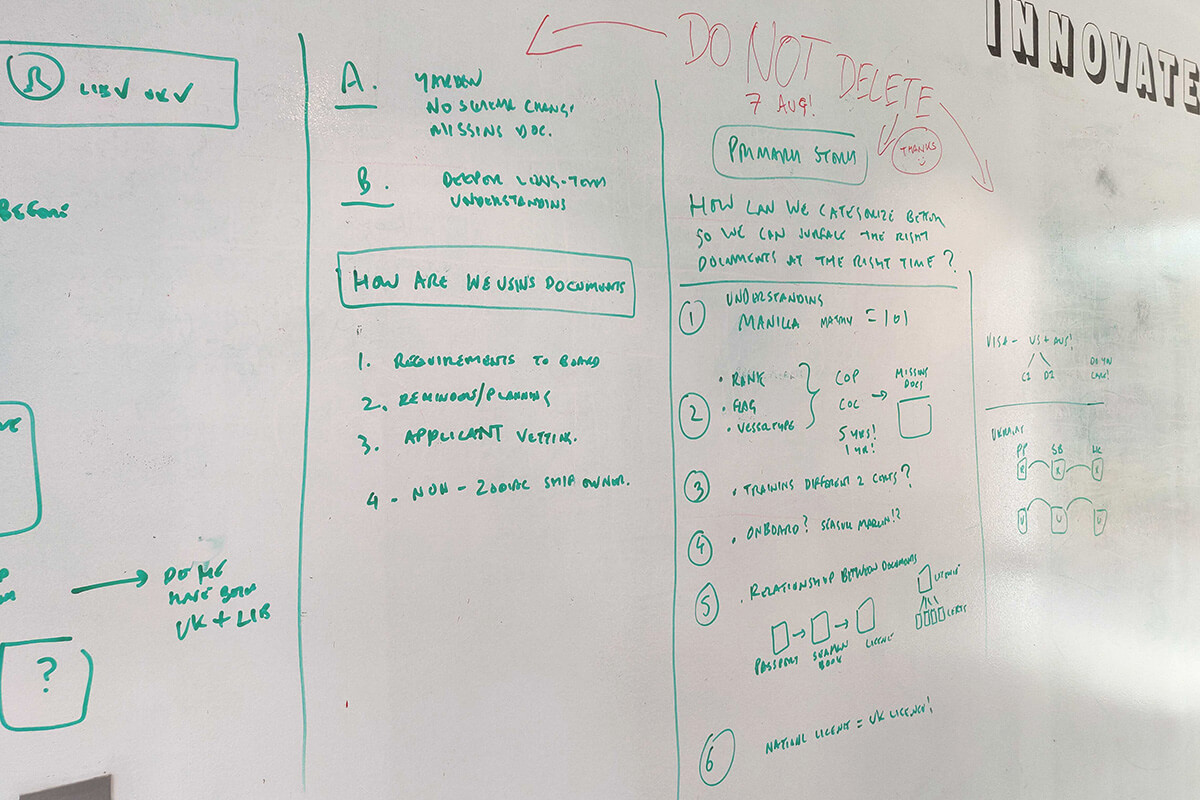 LIB✓ UK✓
BEFORE
DO WE
HAVE BOTH
UK + LIB
?
A.
NO SCHEMA CHANGE
MISSING DOC.
B.
DEEPER LONG-TERM
UNDERSTANDING
HOW ARE WE USING DOCUMENTS
1. REQUIREMENTS TO BOARD
2. REMINDERS/PLANNING
3. APPLICANT VETTING.
4. NON-ZODIAC SHIP OWNER.
DO NOT DELETE
7 AUG!
THANKS
PRIMARY STORY
HOW CAN WE CATEGORIZE BETTER
SO WE CAN SURFACE THE RIGHT
DOCUMENTS AT THE RIGHT TIME?
1 UNDERSTANDING
MANILLA MATRIX = 101
2
• RANK
• FLAG
• VESSELTYPE
COP
COC
5 YRS!
1 YR!
MISSING
DOCS
3 • TRAINING DIFFERENT 2 CERTS?
4 • ONBOARD?
5 • RELATIONSHIP BETWEEN DOCUMENTS
PASSPORT
SEAMAN
BOOK
LICENCE
LICENCE
CERTS
6 NATIONAL LICENCE = UK LICENCE!
VISA - US + AUS!
C1 D1
DO YOU
CARE!
UKRAINE
PP SB
R R R
U U U
INNOVATE